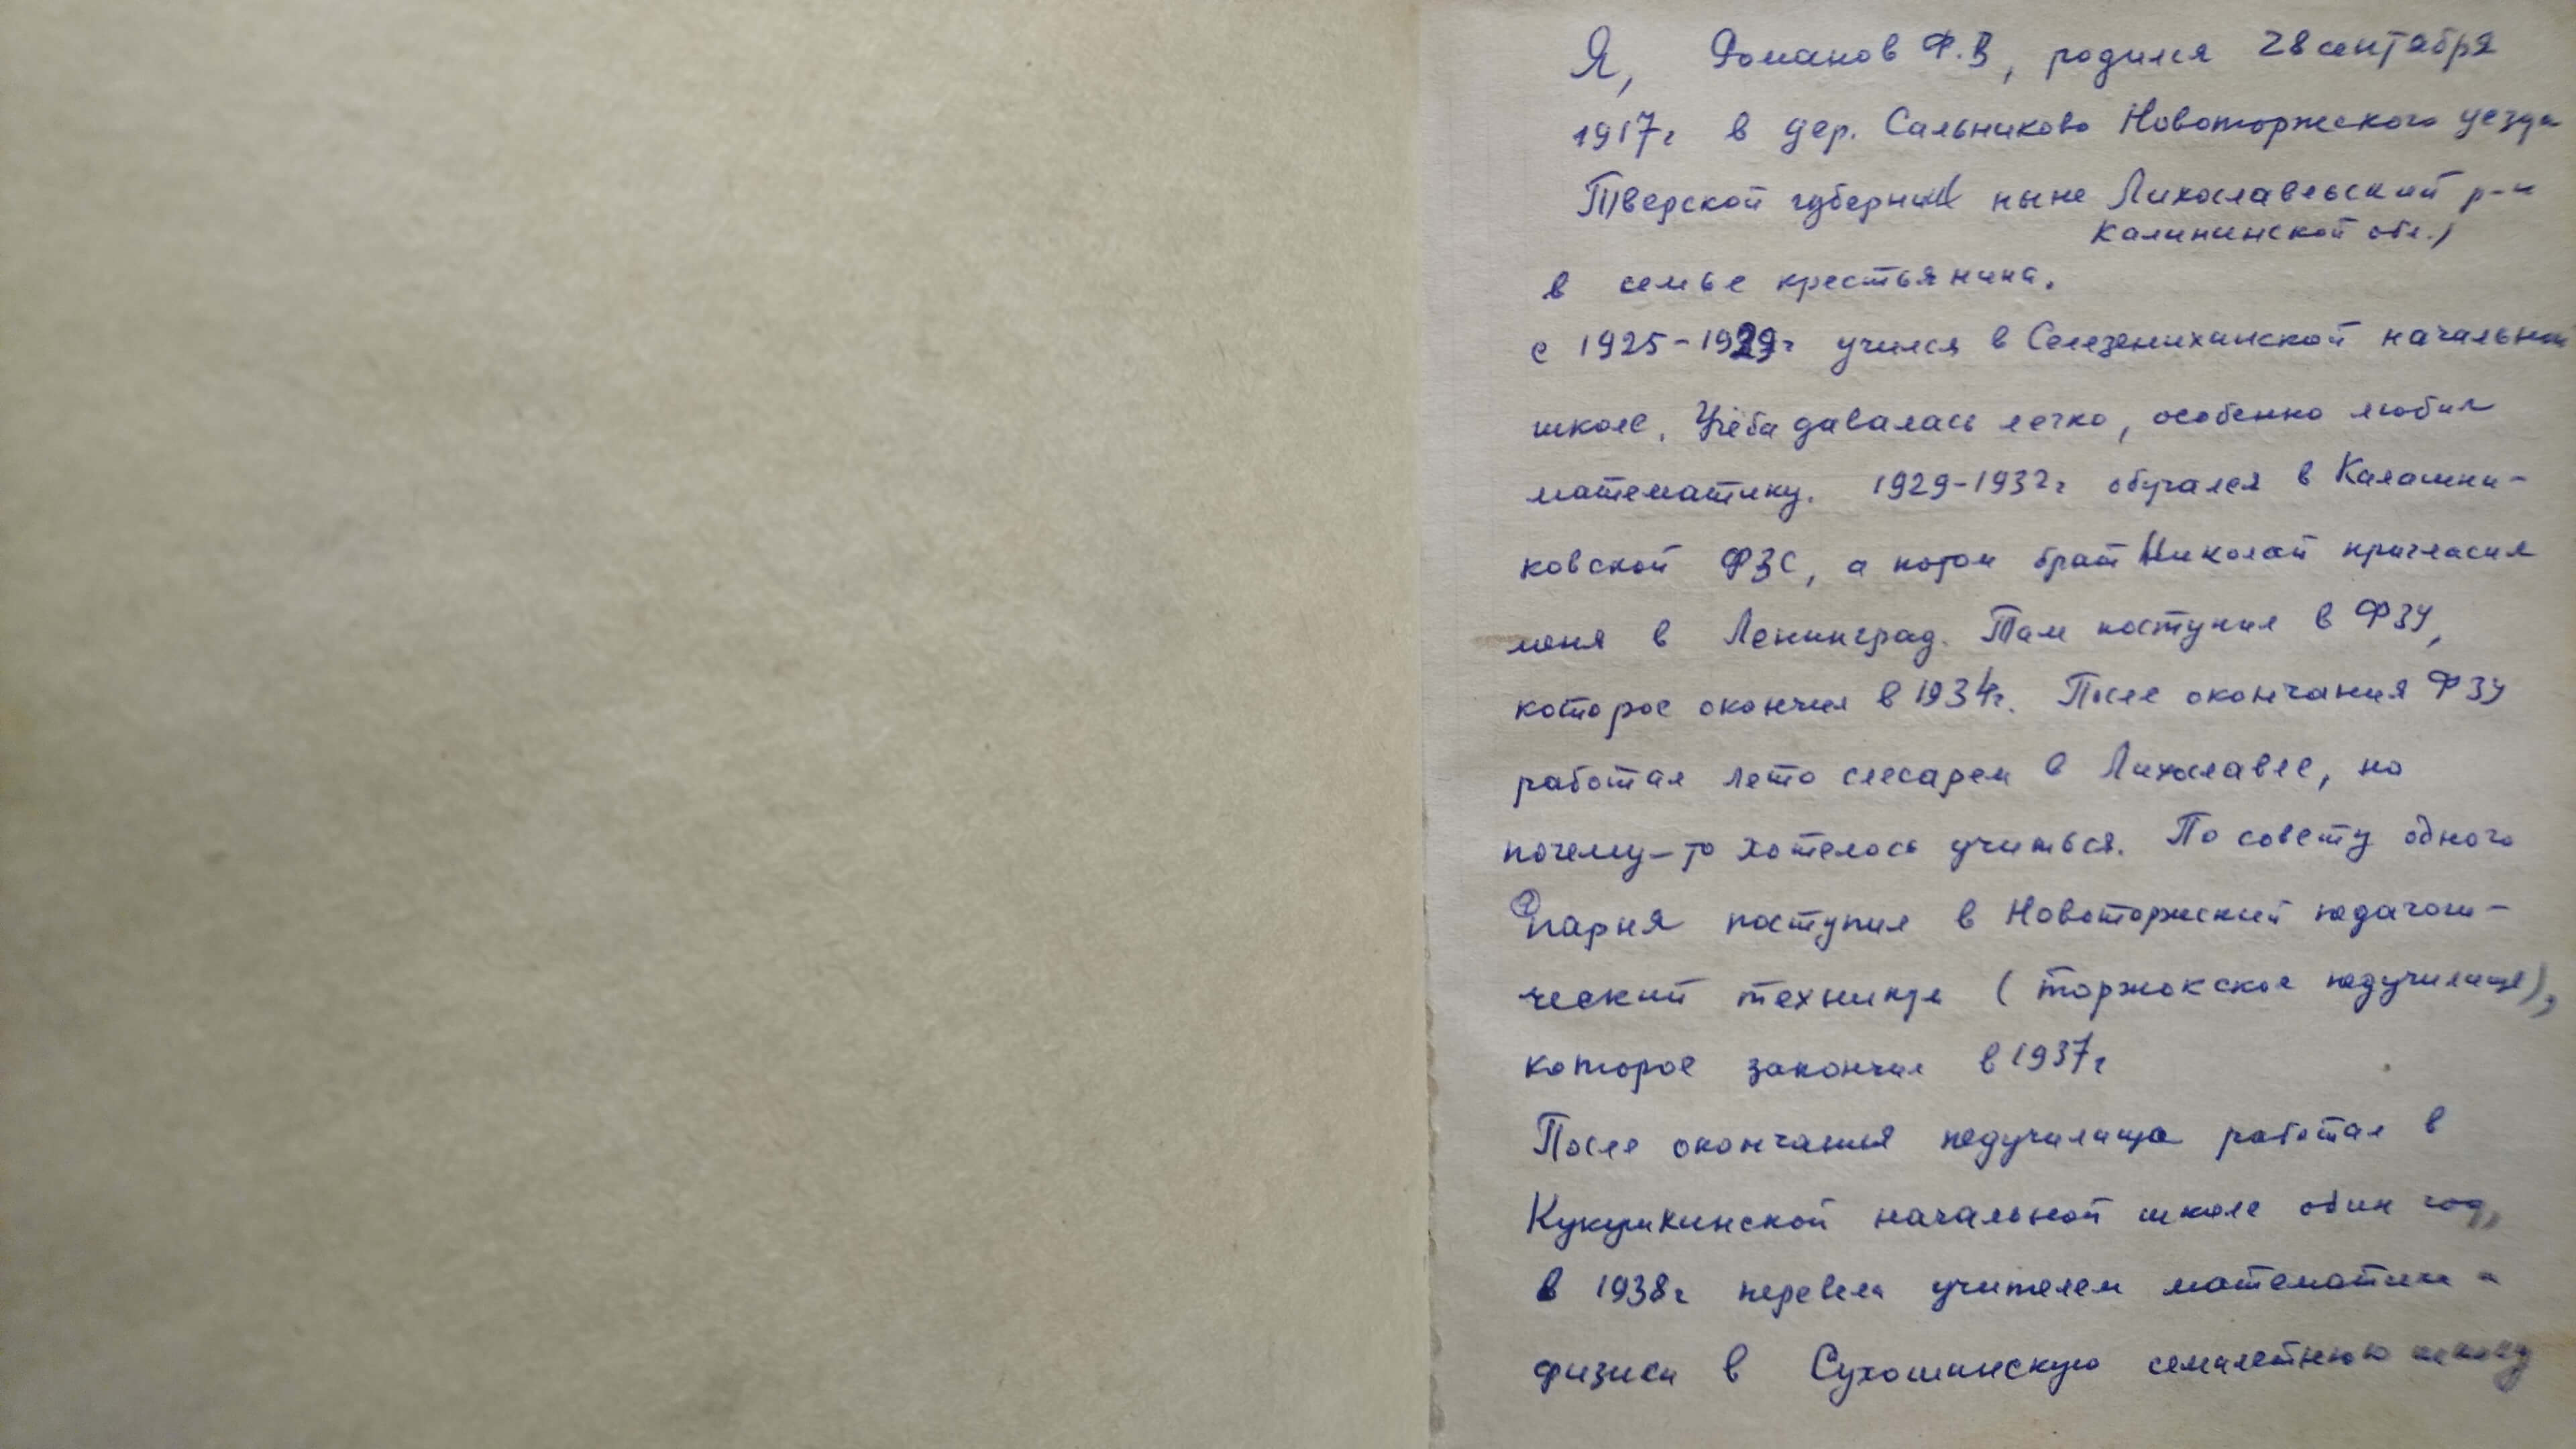 Я, Романов Ф.В, родился 28 сентября
1917г в дер. Сальниково Новоторжского уезда
Тверской губернии ныне Лихославльский р-н
Калининской обл.)
в семье крестьянина.
с 1925-1929г учился в Селезенихинской начальной
школе. Учёба давалась легко, особенно любил
математику. 1929-1932г обучался в Калашни-
ковской ФЗС, а потом брат Николай пригласил
меня в Ленинград. Там поступил в ФЗУ,
которое окончил в 1934г. После окончания ФЗУ
работал лето слесарем в Лихославле, но
почему-то хотелось учиться. По совету одного
парня поступил в Новоторжский педагоги-
ческий техникум (Торжокское педучилище),
которое закончил в 1937г
После окончания педучилища работал в
Кукушкинской начальной школе один год,
в 1938г перевели учителем математики и
физики в Сухошинскую семилетнюю школу